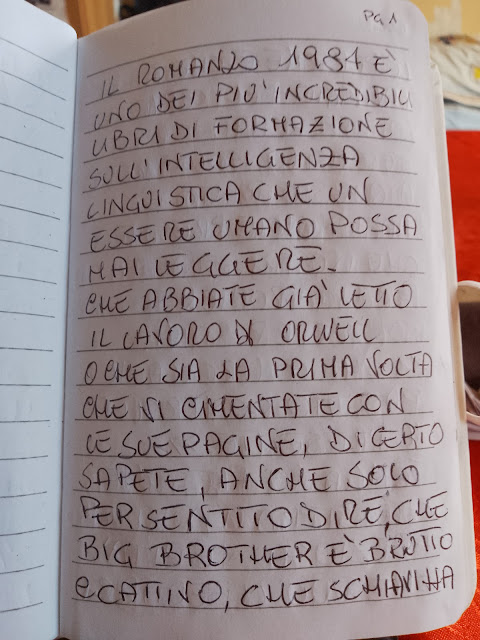 PG 1
IL ROMANZO 1984 È
UNO DEI PIU' INCREDIBILI
LIBRI DI FORMAZIONE
SULL'INTELLIGENZA
LINGUISTICA CHE UN
ESSERE UMANO POSSA
MAI LEGGERE.
CHE ABBIATE GIA' LETTO
IL LAVORO DI ORWELL
O CHE SIA LA PRIMA VOLTA
CHE VI CIMENTATE CON
LE SUE PAGINE, DI CERTO
SAPETE, ANCHE SOLO
PER SENTITO DIRE, CHE
BIG BROTHER È BRUTTO
E CATTIVO, CHE SCHIAVIZZA